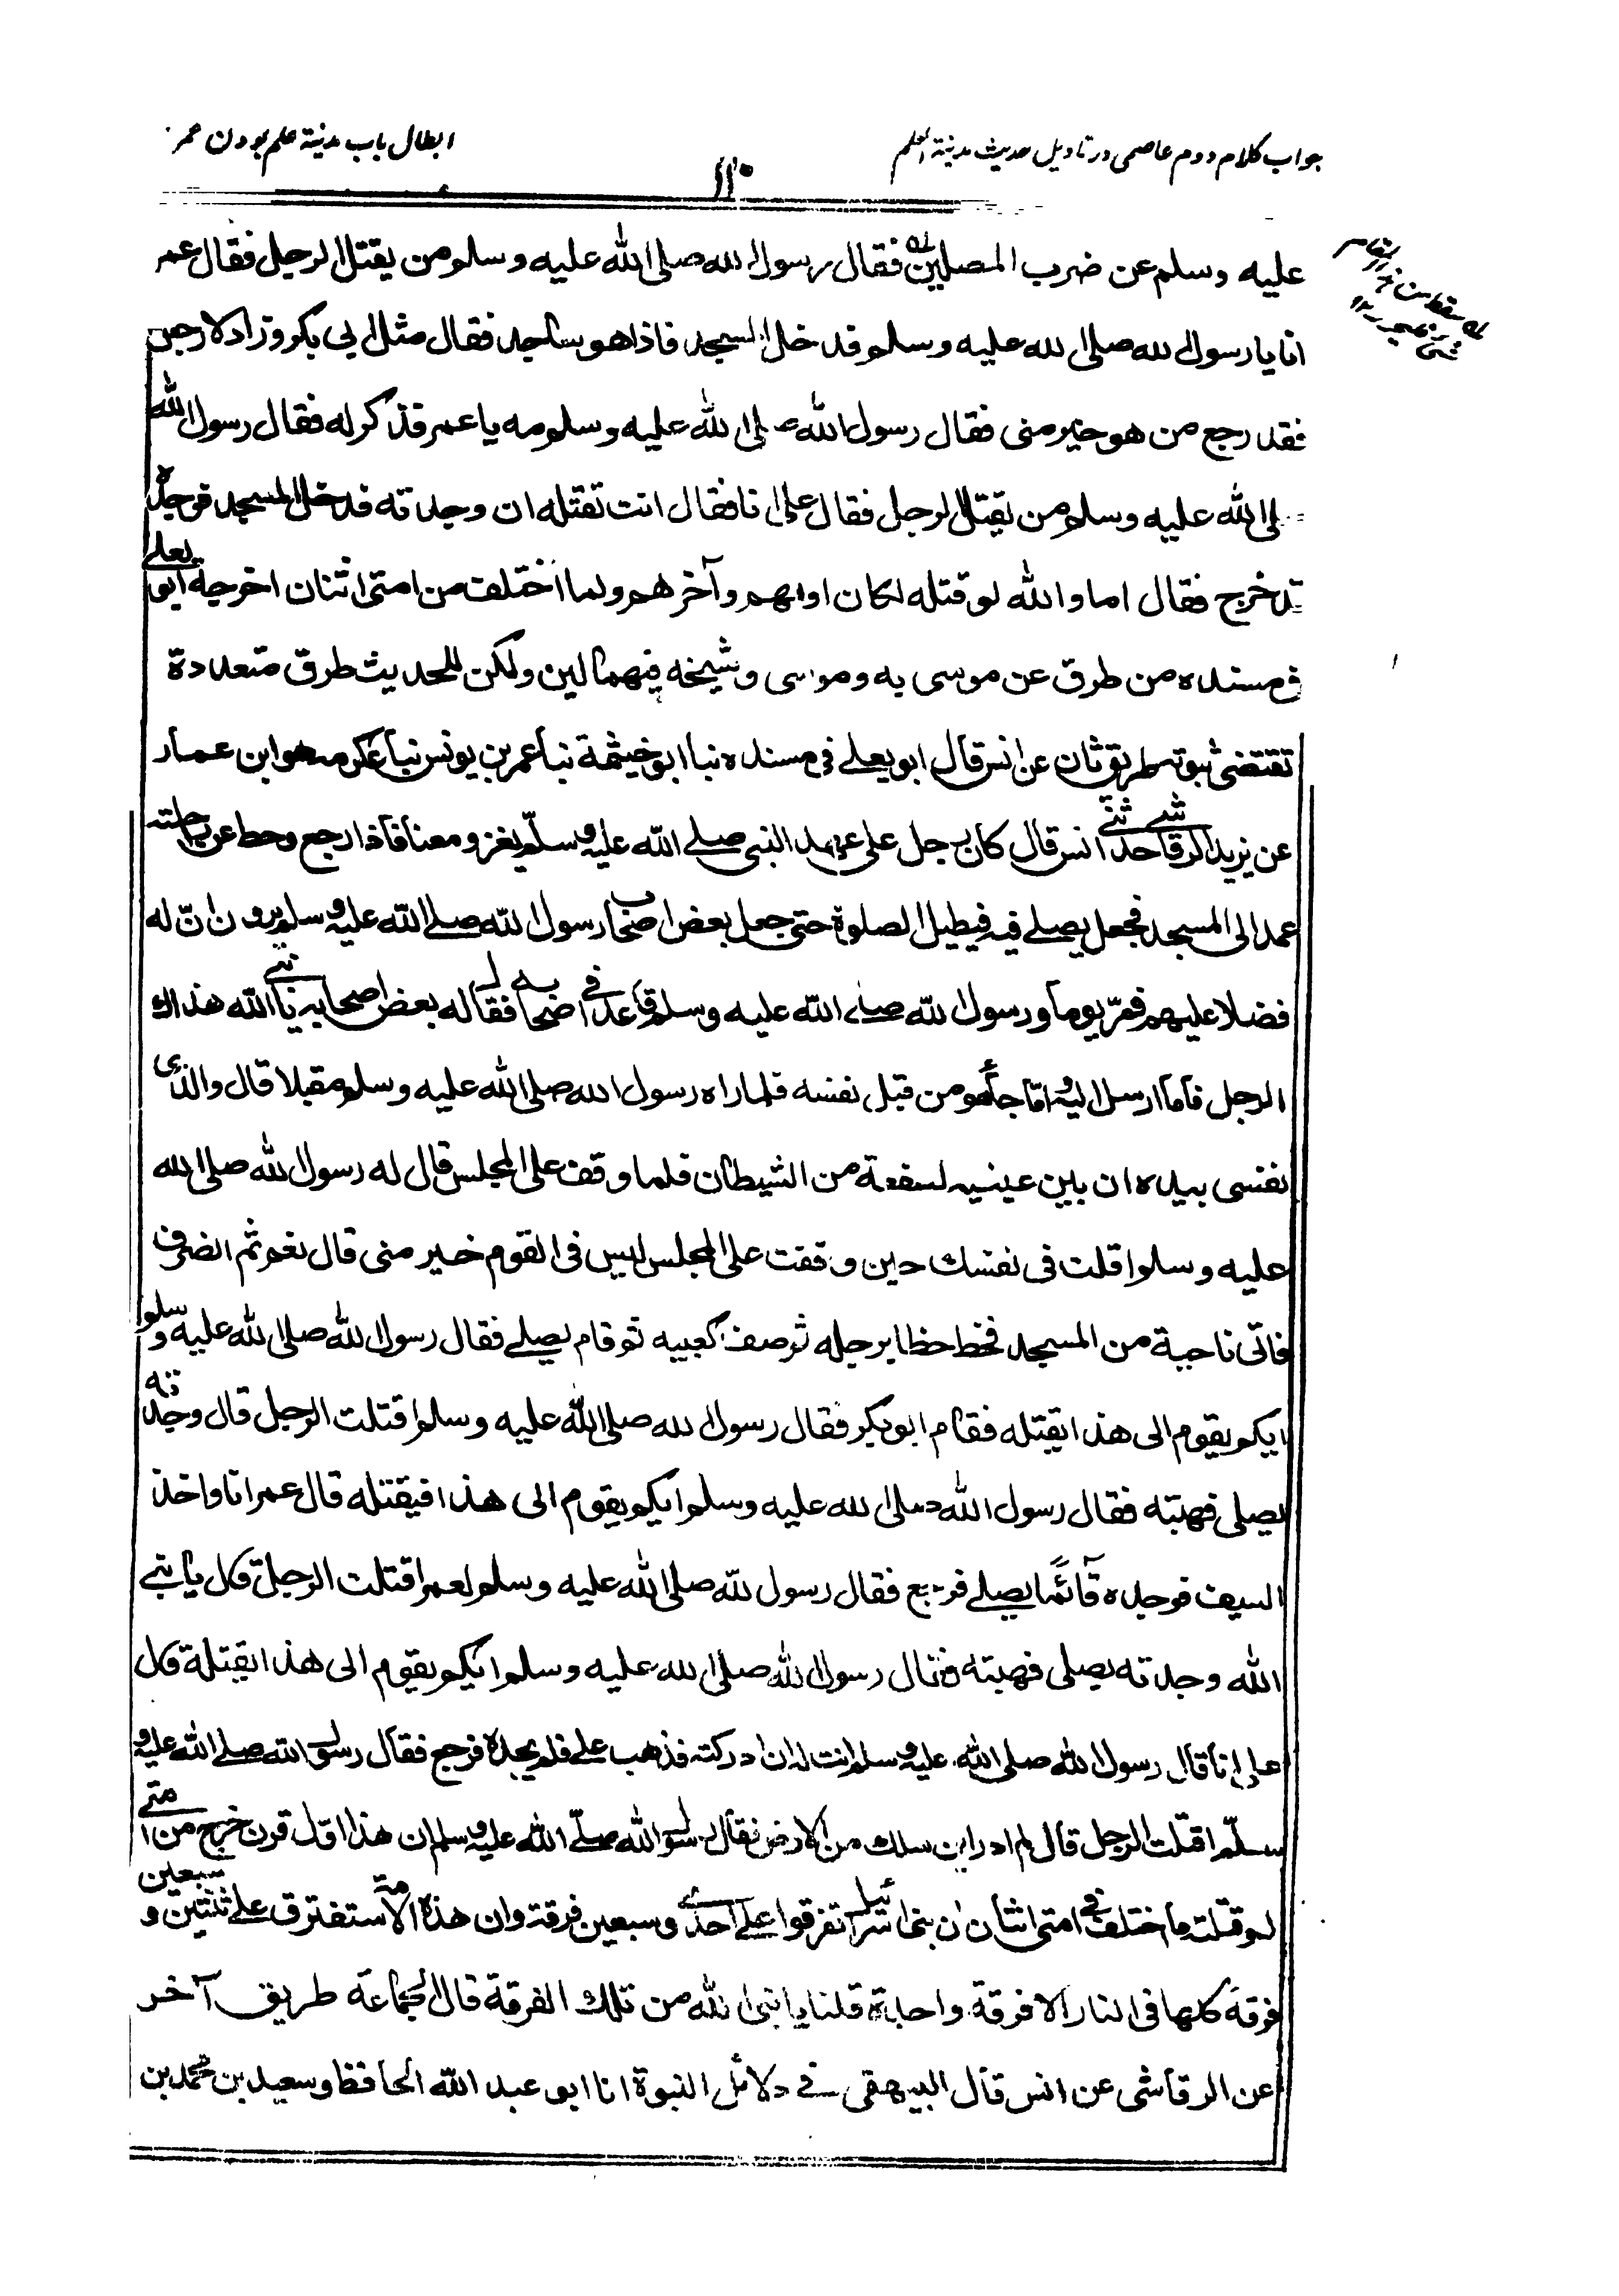 جواب کلام دوم عاصمی در تاویل حدیث مدینة العلم
۱۱۰
ابطال باب مدینة علم بودن عمر
عليه وسلم عن ضرب المصلين فقال رسول الله صلى الله عليه وسلم من يقتل الرجل فقال عمر
انا يا رسول الله صلى الله عليه وسلم فدخل المسجد فاذا هو ساجد فقال مثل ابي بكر وزاد لارجعن
فقد رجع من هو خير مني فقال رسول الله صلى الله عليه وسلم مه يا عمر فذكر له فقال رسول الله
صلى الله عليه وسلم من يقتل الرجل فقال علي انا فقال انت تقتله ان وجدته فدخل المسجد فوجده
قد خرج فقال اما والله لو قتله لكان اولهم وآخرهم ولما اختلف من امتي اثنان اخرجه ابو يعلے
في مسنده من طرق عن موسى به وموسى وشيخه فيهما لين ولكن للحديث طرق متعددة
تقتضي ثبوته طريق ثان عن انس قال ابو يعلے في مسنده نبا ابو خيثمة نبا عمر بن يونس نبا عكرمه هو ابن عمار
عن يزيد الرقاشے حدثنے انس قال كان رجل على عهد النبي صلے الله عليه وسلم يغزو معنا فاذا رجع وحط عن راحلته
عمد الى المسجد فجعل يصلے فيه فيطيل الصلوة حتى جعل بعض اصحاب رسول الله صلے الله عليه وسلم يرون ان له
فضلا عليهم فمر يوما ورسول الله صلے الله عليه وسلم قاعد في اصحابه فقال له بعض اصحابه يا نبے الله هذاك
الرجل فاما ارسل اليه واما جاء هو من قبل نفسه فلما راه رسول الله صلى الله عليه وسلم مقبلا قال والذى
نفسي بيده ان بين عينيه لسفعة من الشيطان فلما وقف على المجلس قال له رسول الله صلى الله
عليه وسلم اقلت في نفسك حين وقفت على المجلس ليس في القوم خير مني قال نعم ثم انصرف
فاتى ناحية من المسجد فخط خطا برجله ثم صف كعبيه ثم قام يصلے فقال رسول الله صلى الله عليه وسلم
ايكم يقوم الى هذا يقتله فقام ابو بكر فقال رسول الله صلى الله عليه وسلم اقتلت الرجل قال وجدته
يصلي فهبته فقال رسول الله صلى الله عليه وسلم ايكم يقوم الى هذا فيقتله قال عمر انا واخذ
السيف فوجده قائما يصلے فرجع فقال رسول الله صلى الله عليه وسلم لعمر اقتلت الرجل قال يا نبے
الله وجدته يصلي فهبته فقال رسول الله صلى الله عليه وسلم ايكم يقوم الى هذا يقتله قال
علي انا قال رسول الله صلى الله عليه وسلم انت له ان ادركته فذهب علے فلم يجده فرجع فقال رسول الله صلے الله عليه و
سلم اقتلت الرجل قال لم ادر اين سلك من الارض فقال رسول الله صلے الله عليه وسلم ان هذا اول قرن خرج من امتے
لو قتلته ما اختلف في امتي اثنان ان بني اسرائيل تفرقوا علے احدے وسبعين فرقة وان هذه الامة ستفترق علے ثنتين وسبعين
فرقة كلها في النار الا فرقة واحدة قلنا يا نبي الله من تلك الفرقة قال الجماعة طريق آخر
عن الرقاشي عن انس قال البيهقي في دلائل النبوة انا ابو عبد الله الحافظ وسعيد بن محمد بن